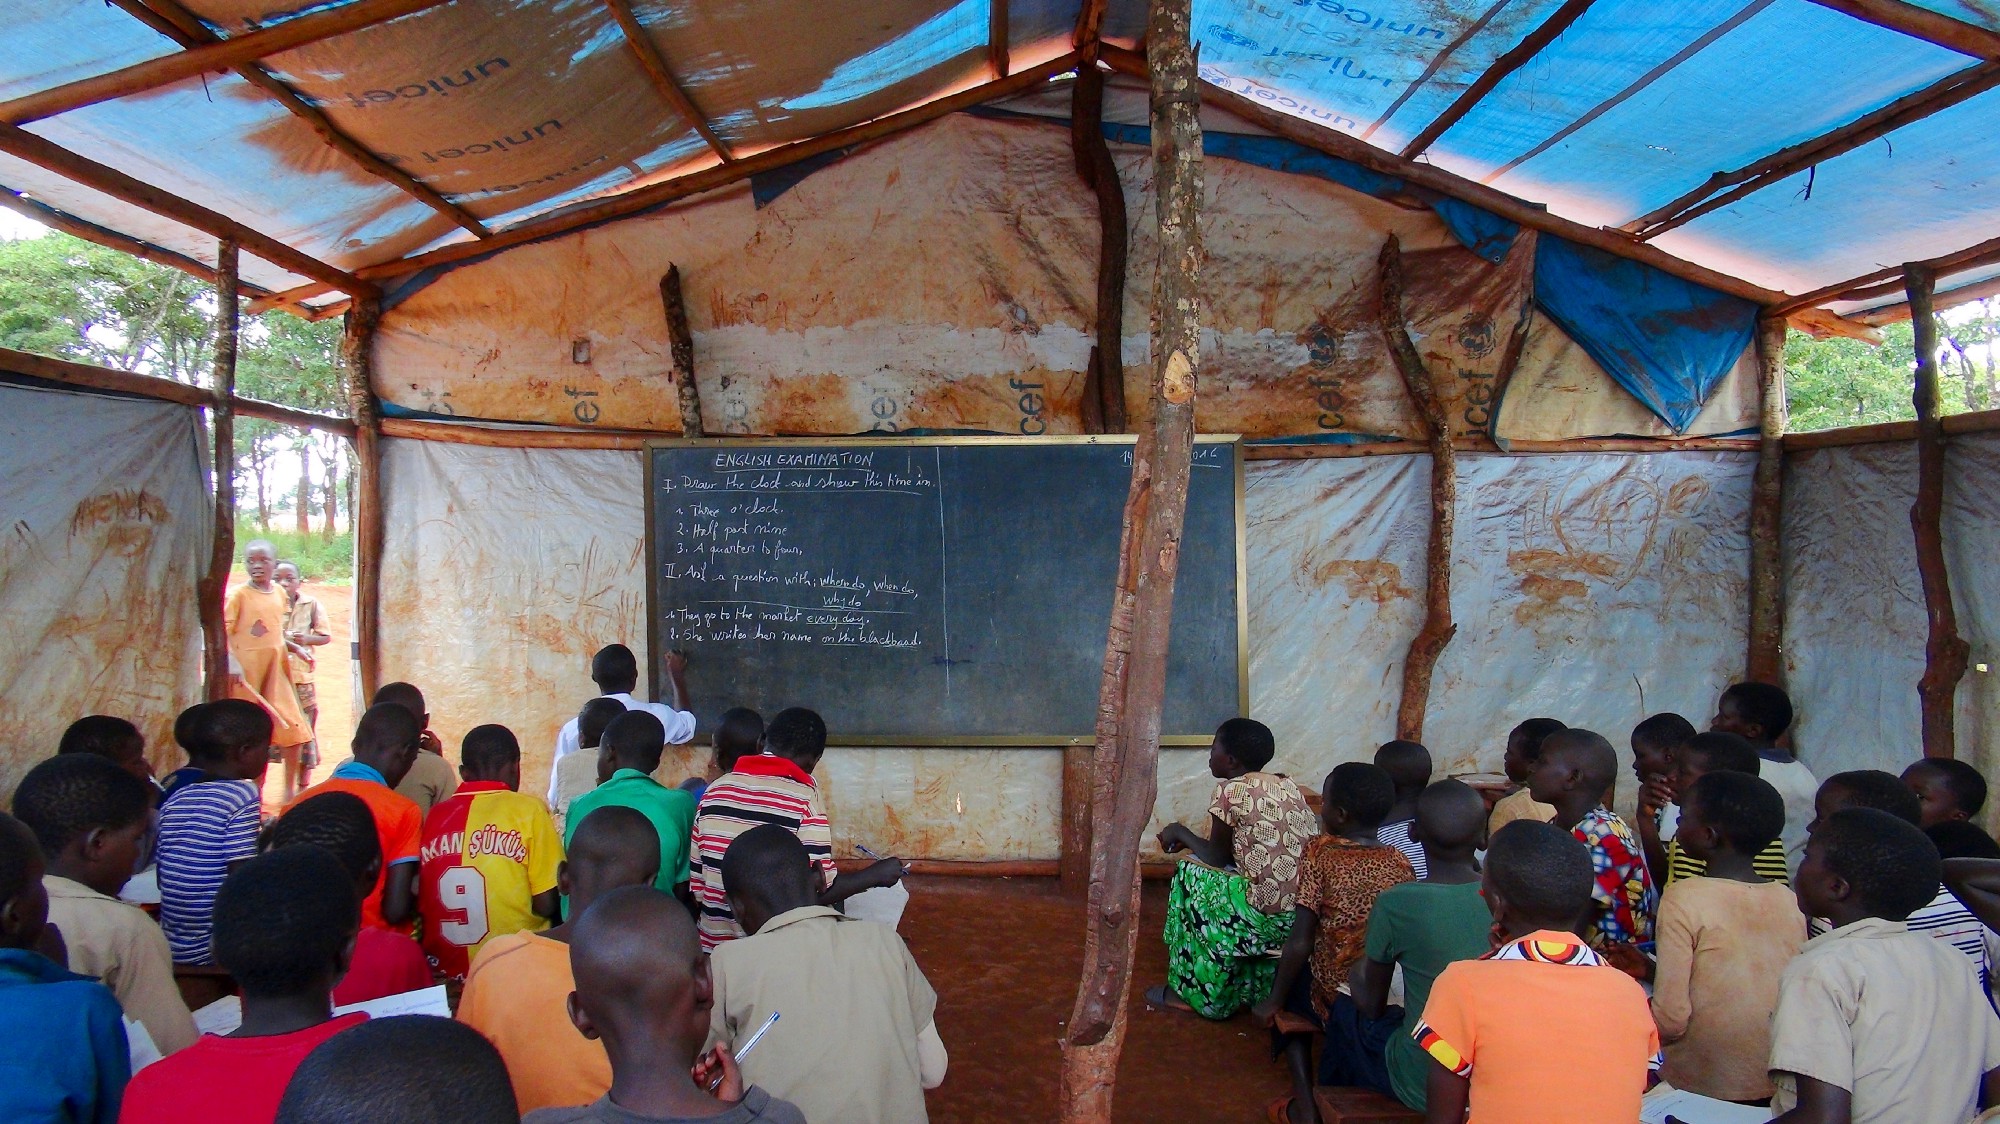 unicef
unicef
unicef
unicef
unicef
unicef
cef
cef
cef
cef
icef
ENGLISH EXAMINATION
I. Draw the clock and show this time in.
1. Three o'clock.
2. Half past nine
3. A quarter to four,
II. Ask a question with: where do, when do,
why do
1. They go to the market every day.
2. She writes her name on the blackboard.
14 016
KAN ŞÜKÜR
9